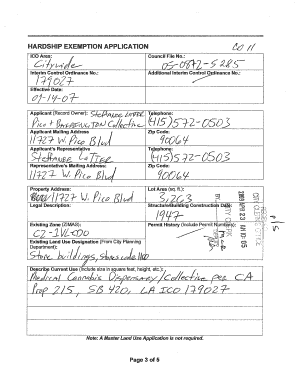 HARDSHIP EXEMPTION APPLICATION CD 11
ICO Area: Council File No.:
Citywide 05-0872-S285
Interim Control Ordinance No.: Additional Interim Control Ordinance No.:
179027
Effective Date:
09-14-07
Applicant (Record Owner): Stephanie Lotter Telephone:
Pico + Barrington Collective (415) 572-0503
Applicant Mailing Address Zip Code:
11727 W. Pico Blvd 90064
Applicant's Representative Telephone:
Stephanie Lotter (415) 572-0503
Representative's Mailing Address Zip Code:
11727 W. Pico Blvd 90064
Property Address: Lot Area (sq. ft.):
11727 W. Pico Blvd 5,263
Legal Description: Structure/Building Construction Date:
1947
Existing Zone (ZIMAS): Permit History (Include Permit Numbers):
C2-1VL-CDO
Existing Land Use Designation (From City Planning
Department):
Store buildings, stores code 1100
Describe Current Use (Include size in square feet, height, etc.):
Medical Cannabis Dispensary/Collective per CA
Prop 215, SB 420, LA ICO 179027
Note: A Master Land Use Application is not required.
Page 3 of 5